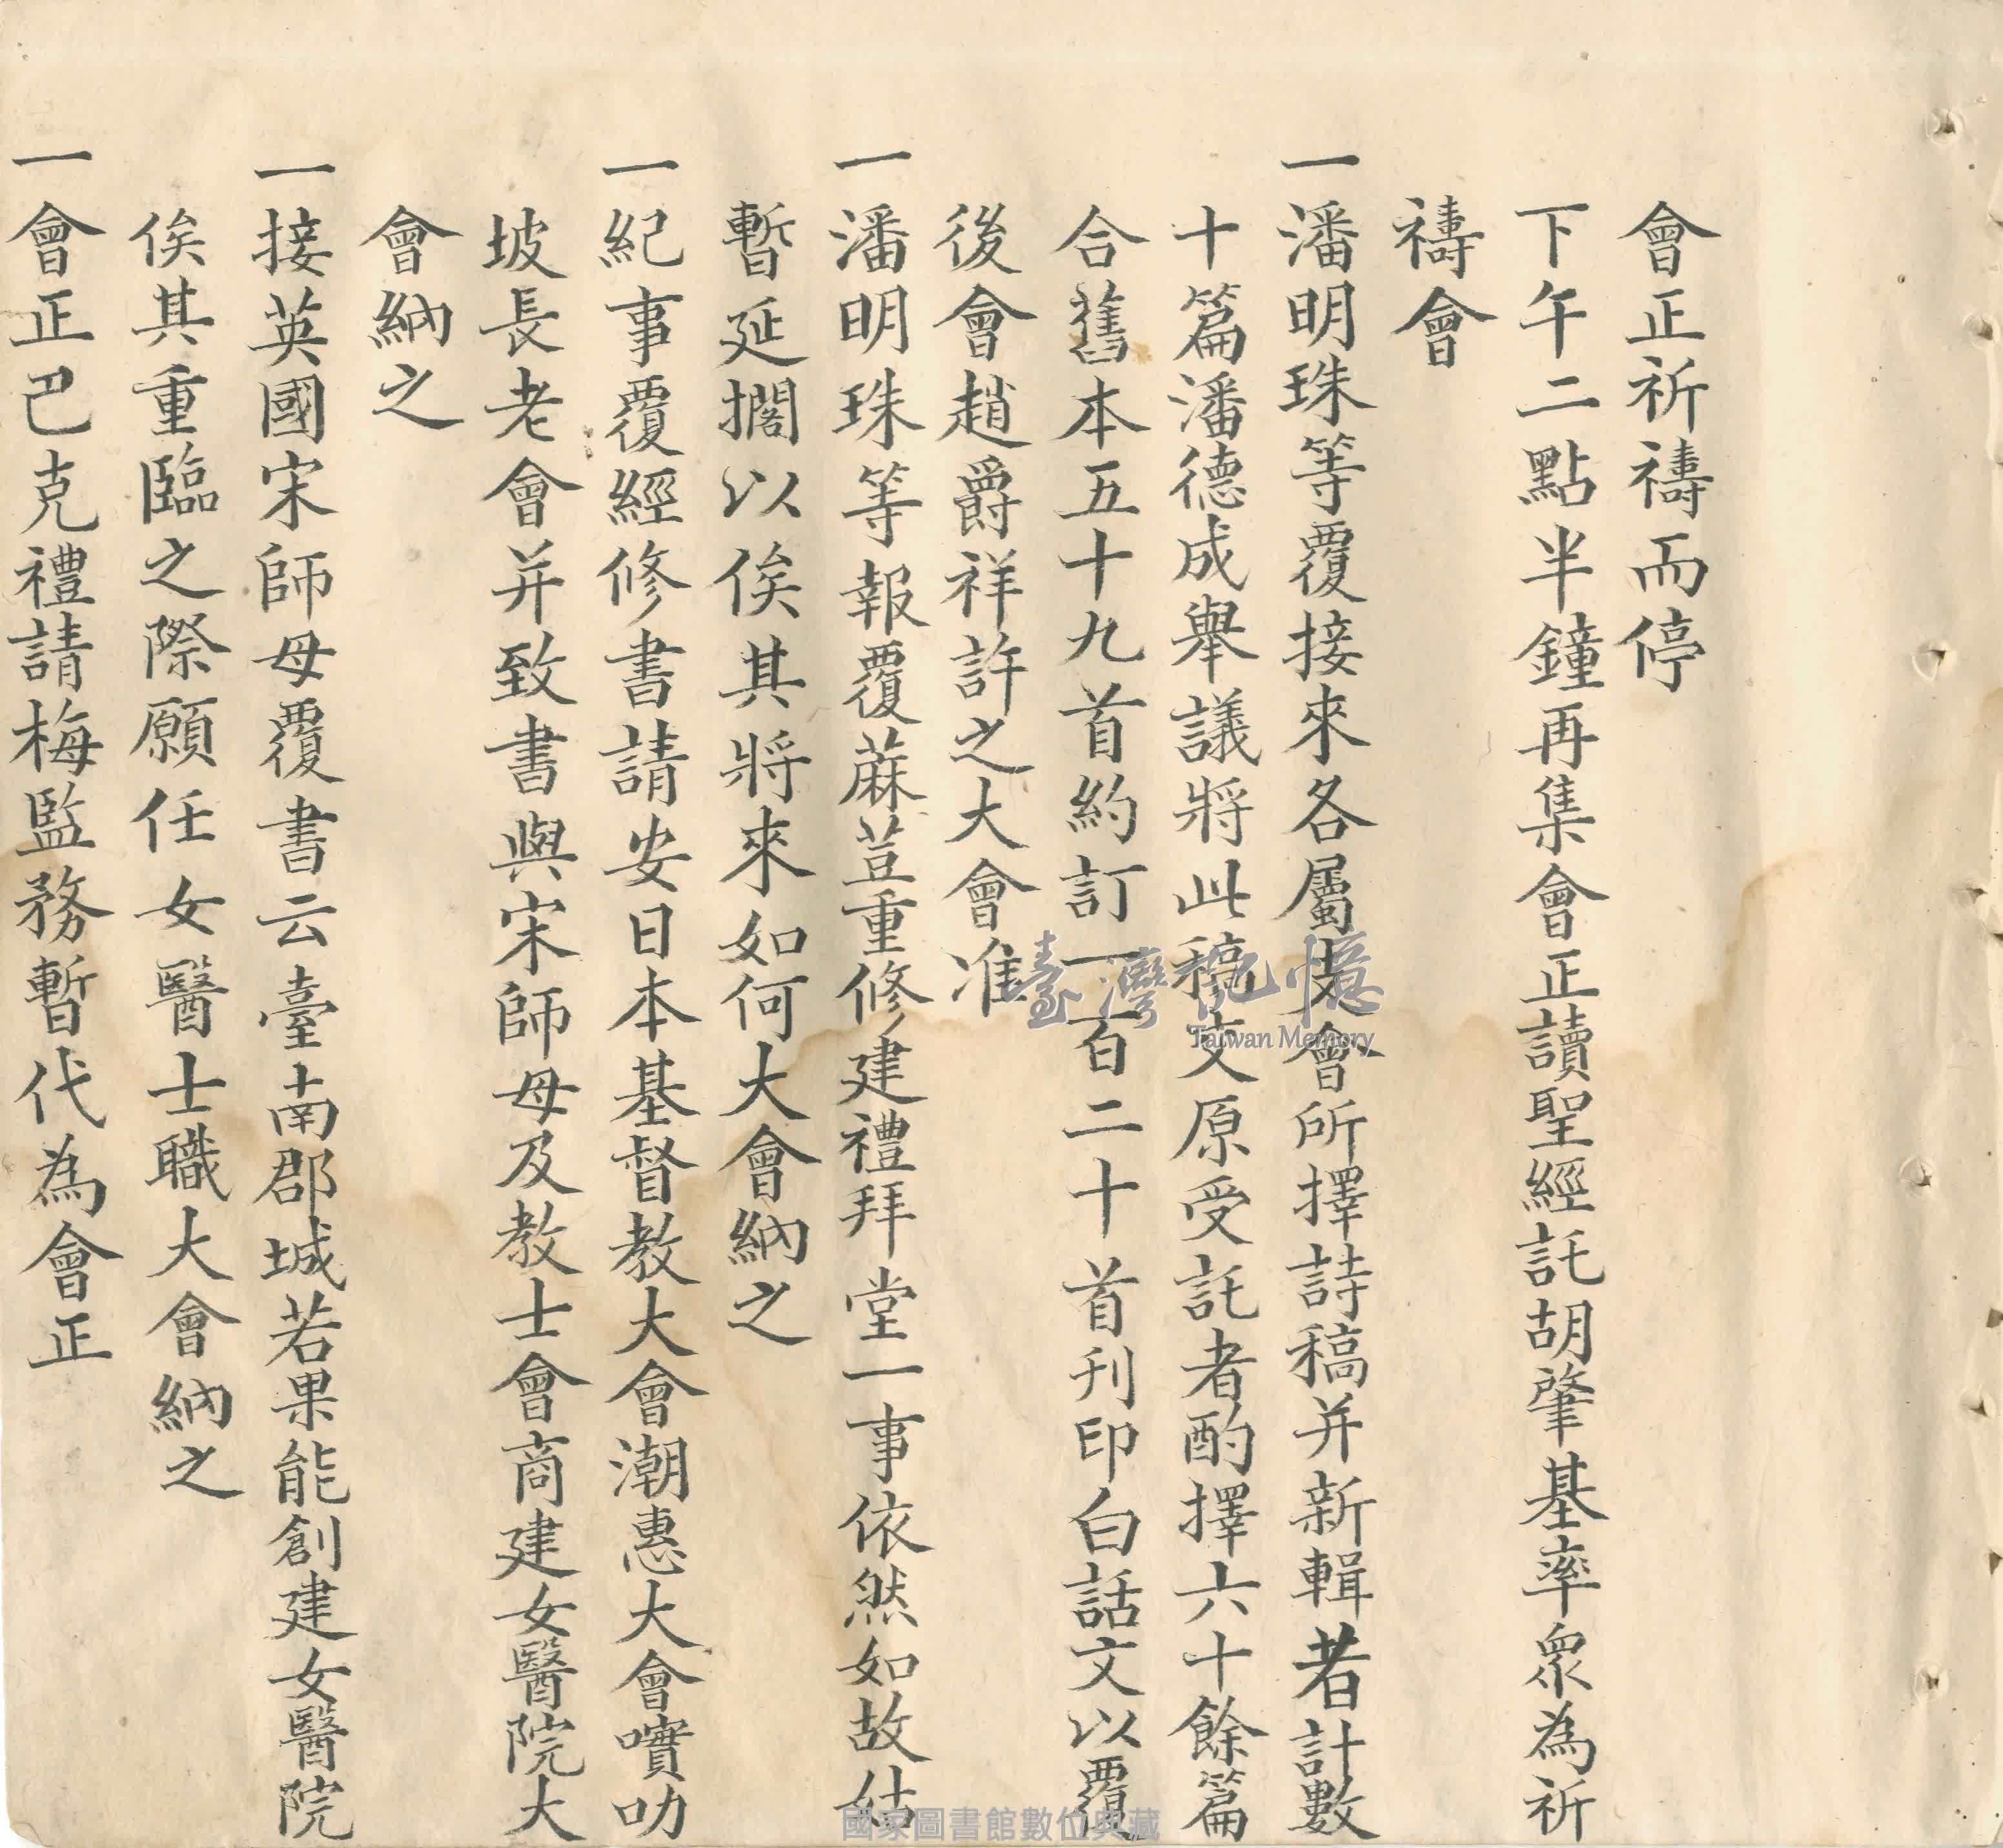 會正祈禱而停
下午二點半鐘再集會正讀聖經託胡肇基率眾為祈
禱會
一潘明珠等覆接來各屬支會所擇詩稿并新輯者計數
十篇潘德成舉議將此稿交原受託者酌擇六十餘篇
合舊本五十九首約訂一百二十首刊印白話文以覆
後會趙爵祥許之大會准
一潘明珠等報覆蔴荳重修建禮拜堂一事依然如故姑
暫延擱以俟其將來如何大會納之
一紀事覆經修書請安日本基督教大會潮惠大會嘪叻
坡長老會并致書與宋師母及教士會商建女醫院大
會納之
一接英國宋師母覆書云臺南郡城若果能創建女醫院
俟其重臨之際願任女醫士職大會納之
一會正巴克禮請梅監務暫代為會正
臺灣記憶
Taiwan Memory
國家圖書館數位典藏